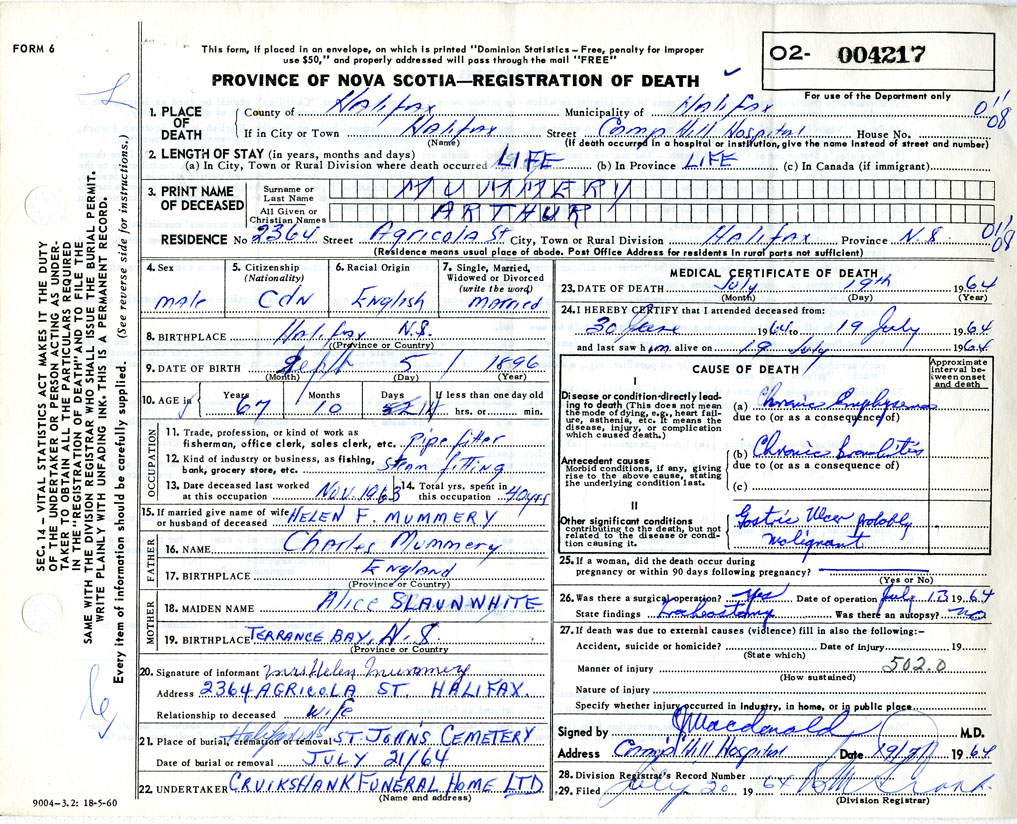 FORM 6
This form, if placed in an envelope, on which is printed "Dominion Statistics – Free, penalty for improper
use $50," and properly addressed will pass through the mail "FREE"
PROVINCE OF NOVA SCOTIA—REGISTRATION OF DEATH
02- 004217
For use of the Department only
SEC. 14 – VITAL STATISTICS ACT MAKES IT THE DUTY
OF THE UNDERTAKER OR PERSON ACTING AS UNDER-
TAKER TO OBTAIN ALL THE PARTICULARS REQUIRED
IN THE "REGISTRATION OF DEATH" AND TO FILE THE
SAME WITH THE DIVISION REGISTRAR WHO SHALL ISSUE THE BURIAL PERMIT.
WRITE PLAINLY WITH UNFADING INK. THIS IS A PERMANENT RECORD.
Every item of information should be carefully supplied. (See reverse side for instructions.)
1. PLACE OF DEATH
County of Halifax Municipality of Halifax 011
08
If in City or Town Halifax Street Camp Hill Hospital House No.
(Name) (If death occurred in a hospital or institution, give the name instead of street and number)
2. LENGTH OF STAY (in years, months and days)
(a) In City, Town or Rural Division where death occurred LIFE (b) In Province LIFE (c) In Canada (if immigrant)
3. PRINT NAME OF DECEASED
Surname or Last Name MUMMERY
All Given or Christian Names ARTHUR
RESIDENCE No 2364 Street Agricola St City, Town or Rural Division Halifax Province N.S. 01/
08
(Residence means usual place of abode. Post Office Address for residents in rural parts not sufficient)
4. Sex male
5. Citizenship (Nationality) Cdn
6. Racial Origin English
7. Single, Married, Widowed or Divorced (write the word) married
8. BIRTHPLACE Halifax N.S.
(Province or Country)
9. DATE OF BIRTH Sept 5 1896
(Month) (Day) (Year)
10. AGE in Years 67 Months 10 Days 14 If less than one day old
hrs. or min.
OCCUPATION
11. Trade, profession, or kind of work as
fisherman, office clerk, sales clerk, etc. Pipe fitter
12. Kind of industry or business, as fishing,
bank, grocery store, etc. Steam fitting
13. Date deceased last worked
at this occupation Nov. 1963
14. Total yrs. spent in
this occupation 40yrs
15. If married give name of wife
or husband of deceased HELEN F. MUMMERY
FATHER
16. NAME Charles Mummery
17. BIRTHPLACE England
(Province or Country)
MOTHER
18. MAIDEN NAME Alice SLAUNWHITE
19. BIRTHPLACE TERRANCE BAY, N.S
(Province or Country)
20. Signature of informant Mrs Helen Mummery
Address 2364 AGRICOLA ST. HALIFAX
Relationship to deceased Wife
21. Place of burial, cremation or removal Halifax NS ST. JOHNS CEMETERY
Date of burial or removal JULY 21/64
22. UNDERTAKER CRUIKSHANK FUNERAL HOME LTD
(Name and address)
9004–3.2: 18-5-60
MEDICAL CERTIFICATE OF DEATH
23. DATE OF DEATH July 19th 1964
(Month) (Day) (Year)
24. I HEREBY CERTIFY that I attended deceased from:
30 June 1964 to 19 July 1964
and last saw him alive on 19 July 1964
CAUSE OF DEATH
Approximate interval between onset and death
I
Disease or condition directly lead-
ing to death (This does not mean
the mode of dying, e.g., heart fail-
ure, asthenia, etc. It means the
disease, injury, or complication
which caused death.)
(a) Chronic Emphysema
due to (or as a consequence of)
Antecedent causes
Morbid conditions, if any, giving
rise to the above cause, stating
the underlying condition last.
(b) Chronic Bronchitis
due to (or as a consequence of)
(c)
II
Other significant conditions
contributing to the death, but not
related to the disease or condi-
tion causing it.
Gastric Ulcer probably
malignant
25. If a woman, did the death occur during
pregnancy or within 90 days following pregnancy?
(Yes or No)
26. Was there a surgical operation? Yes Date of operation July 13 1964
State findings Tracheostomy Was there an autopsy? no
27. If death was due to external causes (violence) fill in also the following:–
Accident, suicide or homicide? Date of injury 19
(State which)
Manner of injury 502.0
(How sustained)
Nature of injury
Specify whether injury occurred in industry, in home, or in public place
Signed by J Macdonald M.D.
Address Camp Hill Hospital Date 19/7/ 1964
28. Division Registrar's Record Number
29. Filed July 20 1964
(Division Registrar)